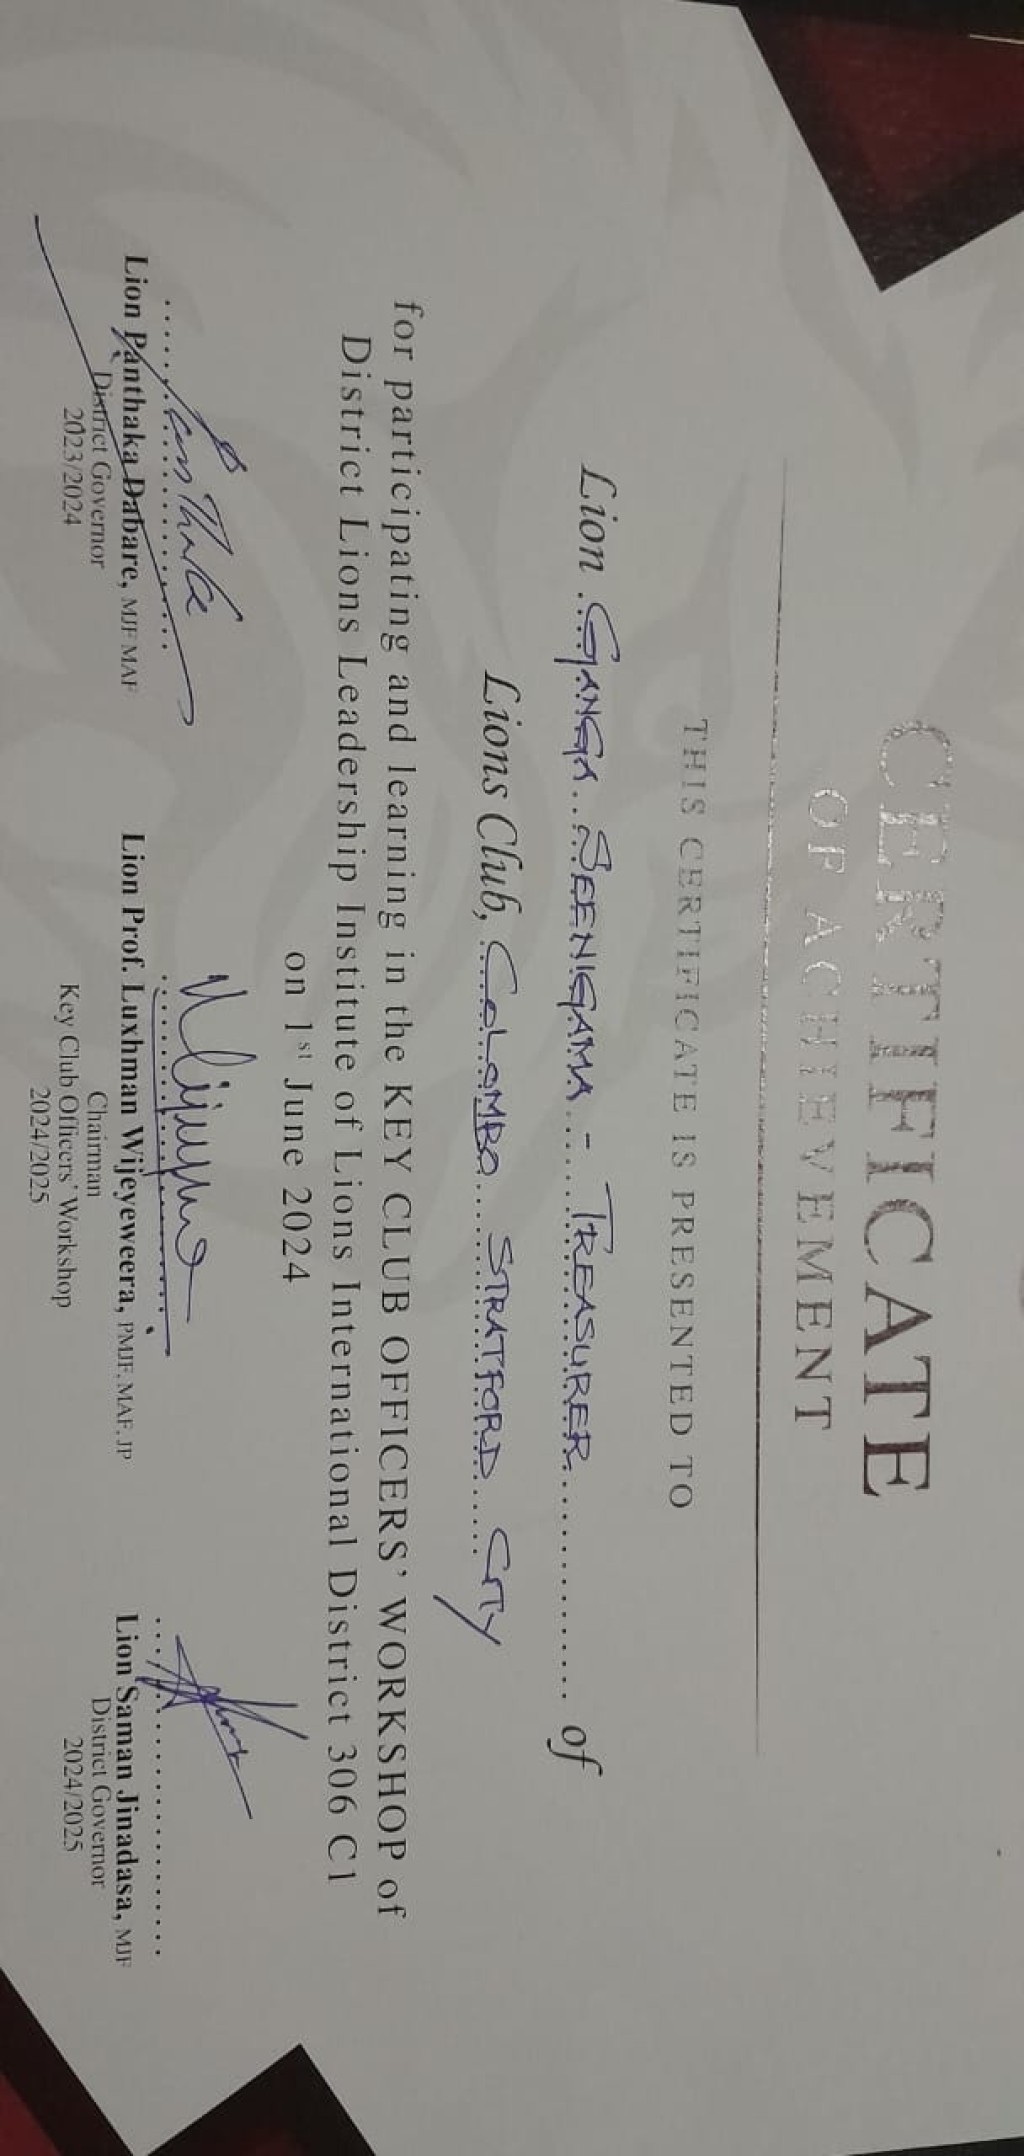 CERTIFICATE
OF ACHIEVEMENT
THIS CERTIFICATE IS PRESENTED TO
Lion GANGA SEENIGAMA - TREASURER of
Lions Club, COLOMBO STRATFORD CITY
for participating and learning in the KEY CLUB OFFICERS' WORKSHOP of
District Lions Leadership Institute of Lions International District 306 C1
on 1st June 2024
Lion Panthaka Dabare, MJF MAF
District Governor
2023/2024
Lion Prof. Luxhman Wijeyeweera, PMJF, MAF, JP
Chairman
Key Club Officers' Workshop
2024/2025
Lion Saman Jinadasa, MJF
District Governor
2024/2025